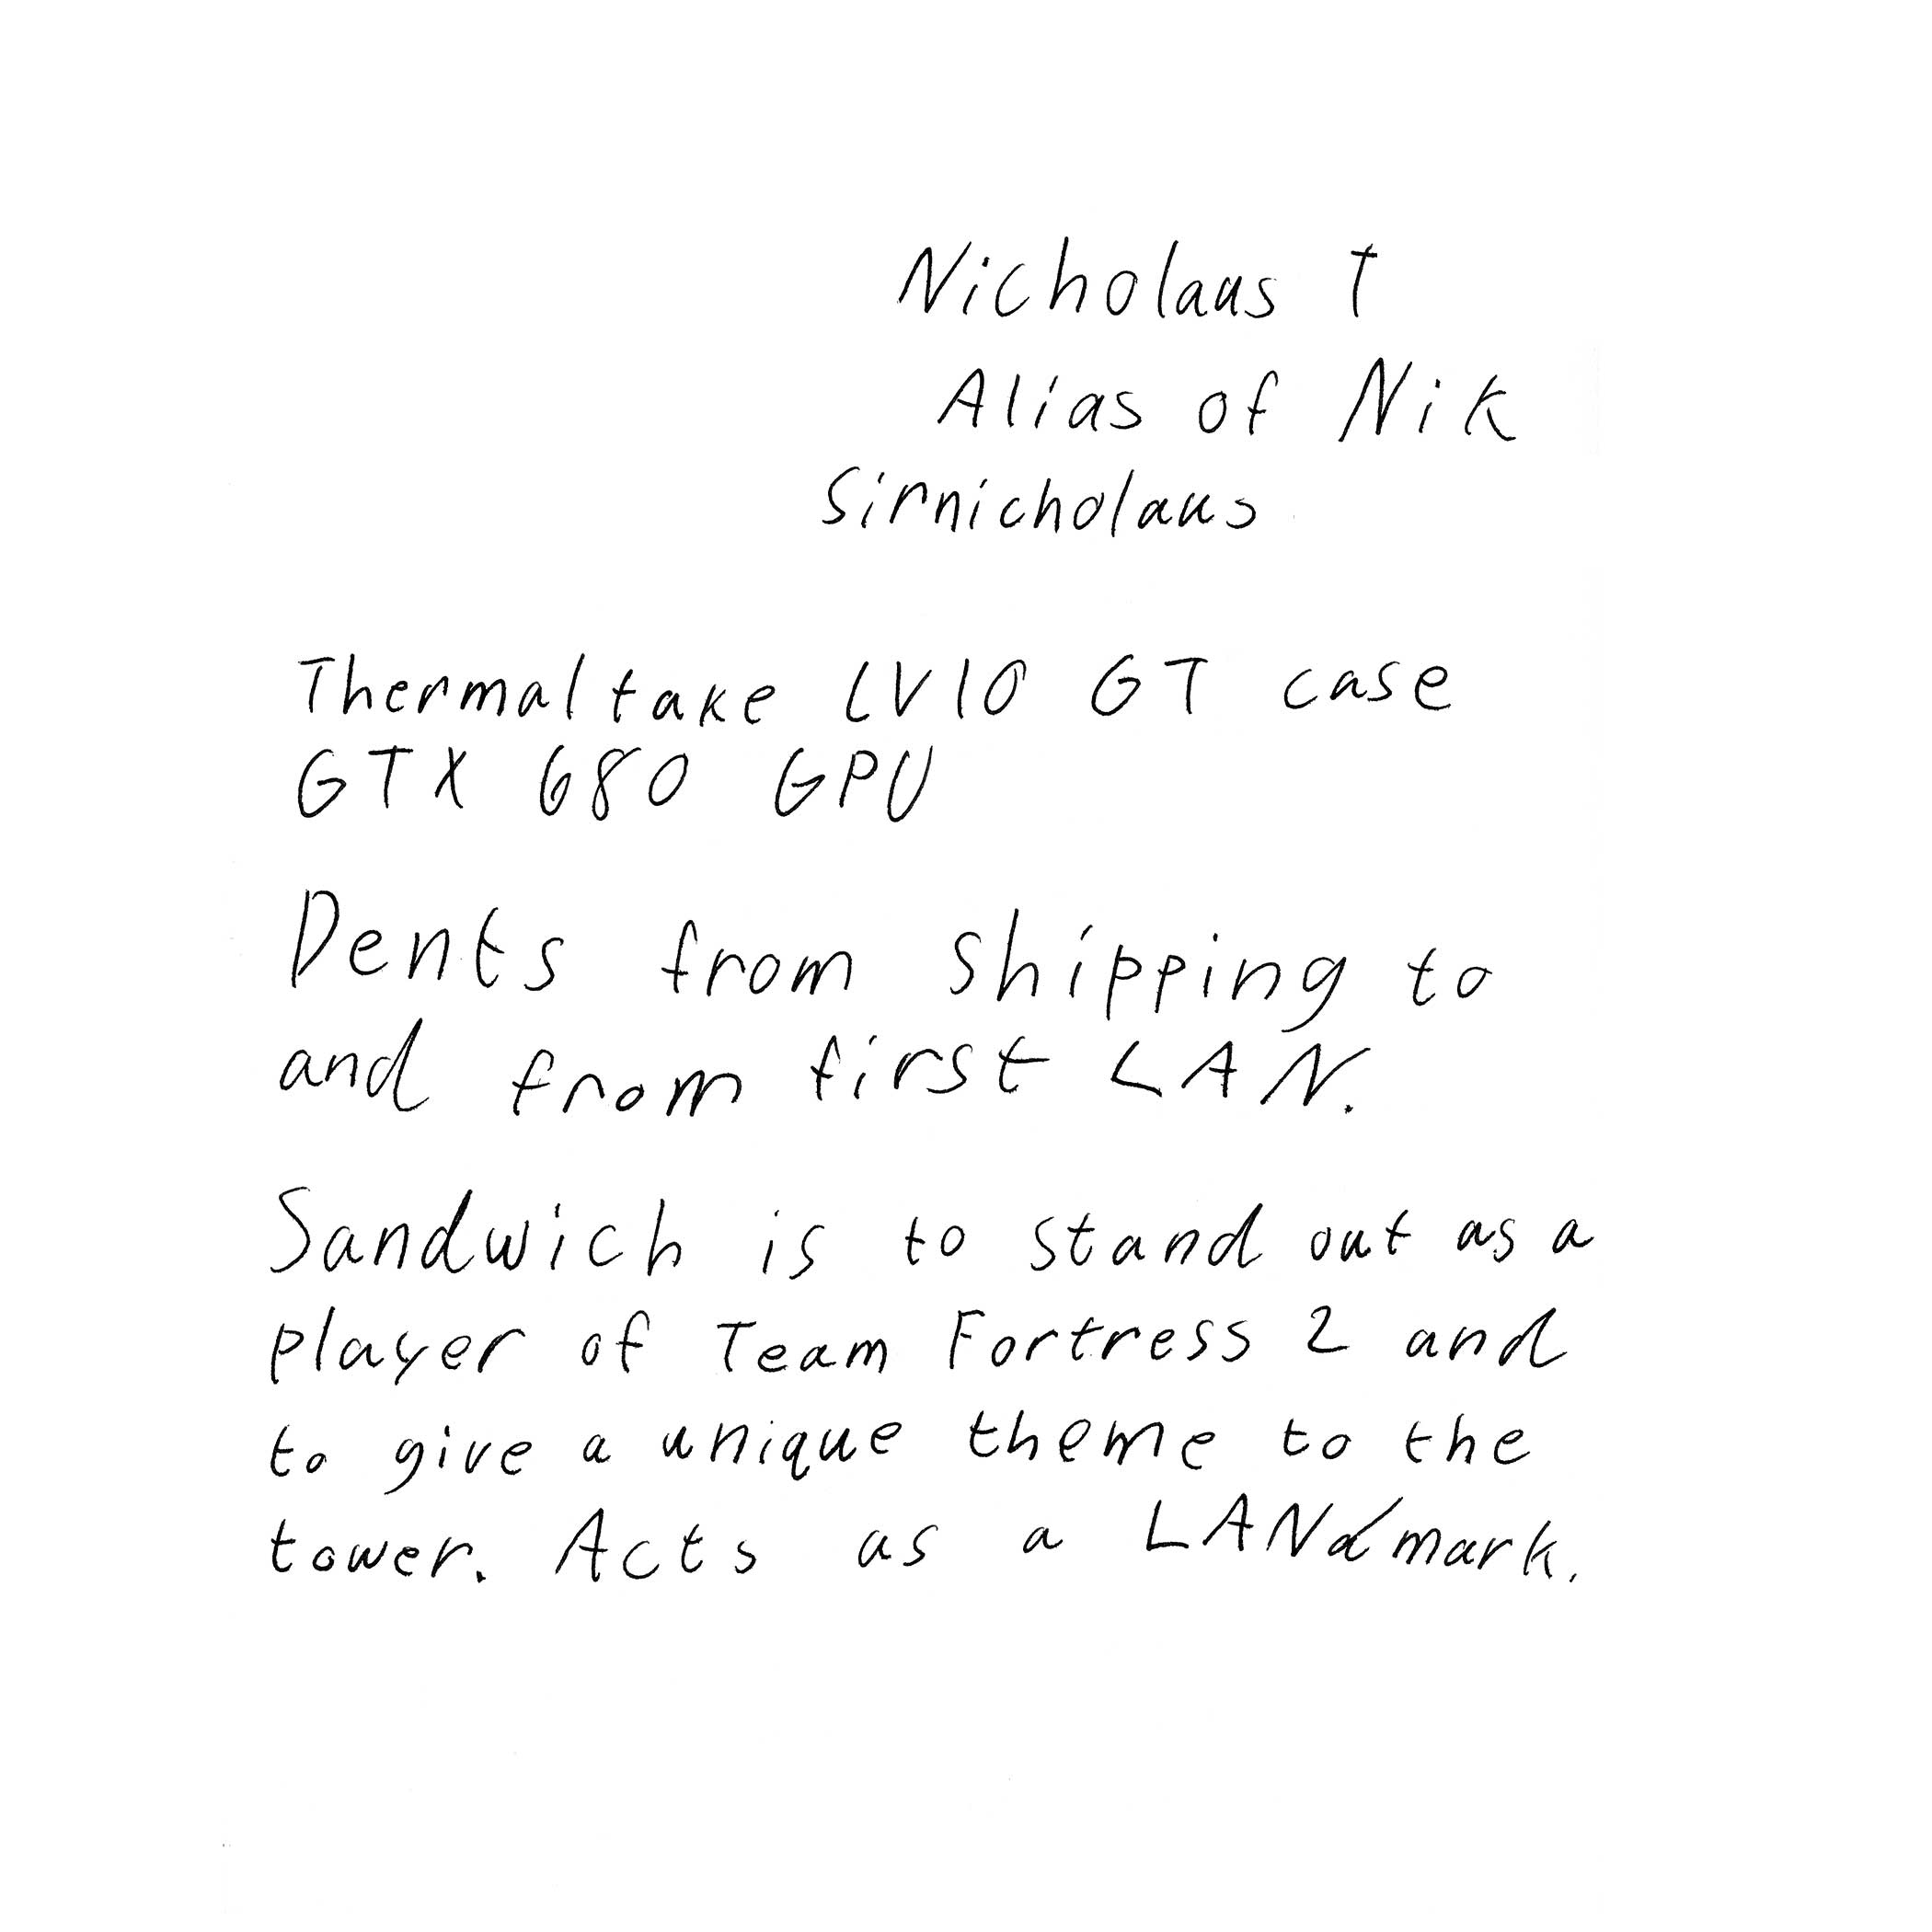 Nicholaus T
Alias of Nik
Sirnicholaus
Thermaltake LV10 GT case
GTX 680 GPU
Dents from shipping to
and from first LAN.
Sandwich is to stand out as a
player of Team Fortress 2 and
to give a unique theme to the
tower. Acts as a LANdmark.